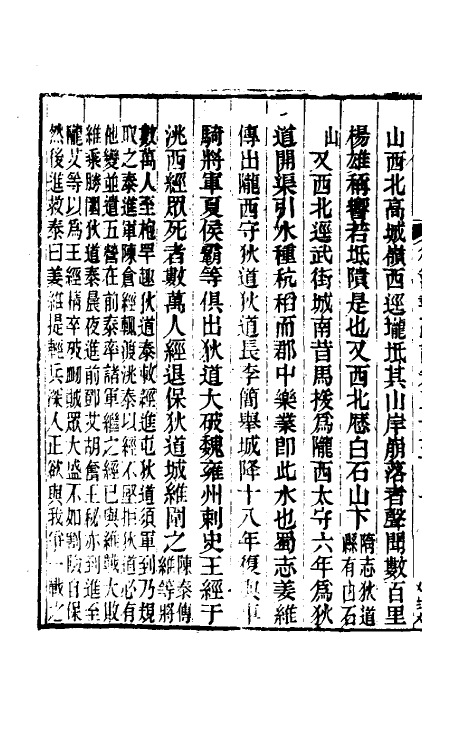 山西北高城嶺西逕隴坻其山岸崩落者聲聞數百里
楊雄稱響若坻隤是也又西北歷白石山下隋志狄道
縣有白石
山又西北逕武街城南昔馬援為隴西太守六年為狄
道開渠引水種秔稻而郡中樂業即此水也蜀志姜維
傳出隴西守狄道狄道長李簡舉城降十八年復與車
騎將軍夏侯霸等俱出狄道大破魏雍州刺史王經于
洮西經眾死者數萬人經退保狄道城維圍之陳泰傳
維等將
數萬人至枹罕趣狄道泰敕經進屯狄道須軍到乃規
取之泰進軍陳倉經輒渡洮泰以經不堅拒狄道必有
他變並遣五營在前泰率諸軍繼之經已與維戰大敗
維乘勝圍狄道泰晨夜進前鄧艾胡奮王秘亦到進至
隴艾等以為王經精卒破衂賊眾大盛不如割險自保
然後進救泰曰姜維提輕兵深入正欲與我爭一戰之